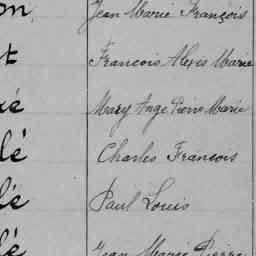 on Jean Marie François
t Francois Alexis Marie
é Mary Ange Pierre Marie
lé Charles Francois
lé Paul Louis
lé Jean Marie Pierre